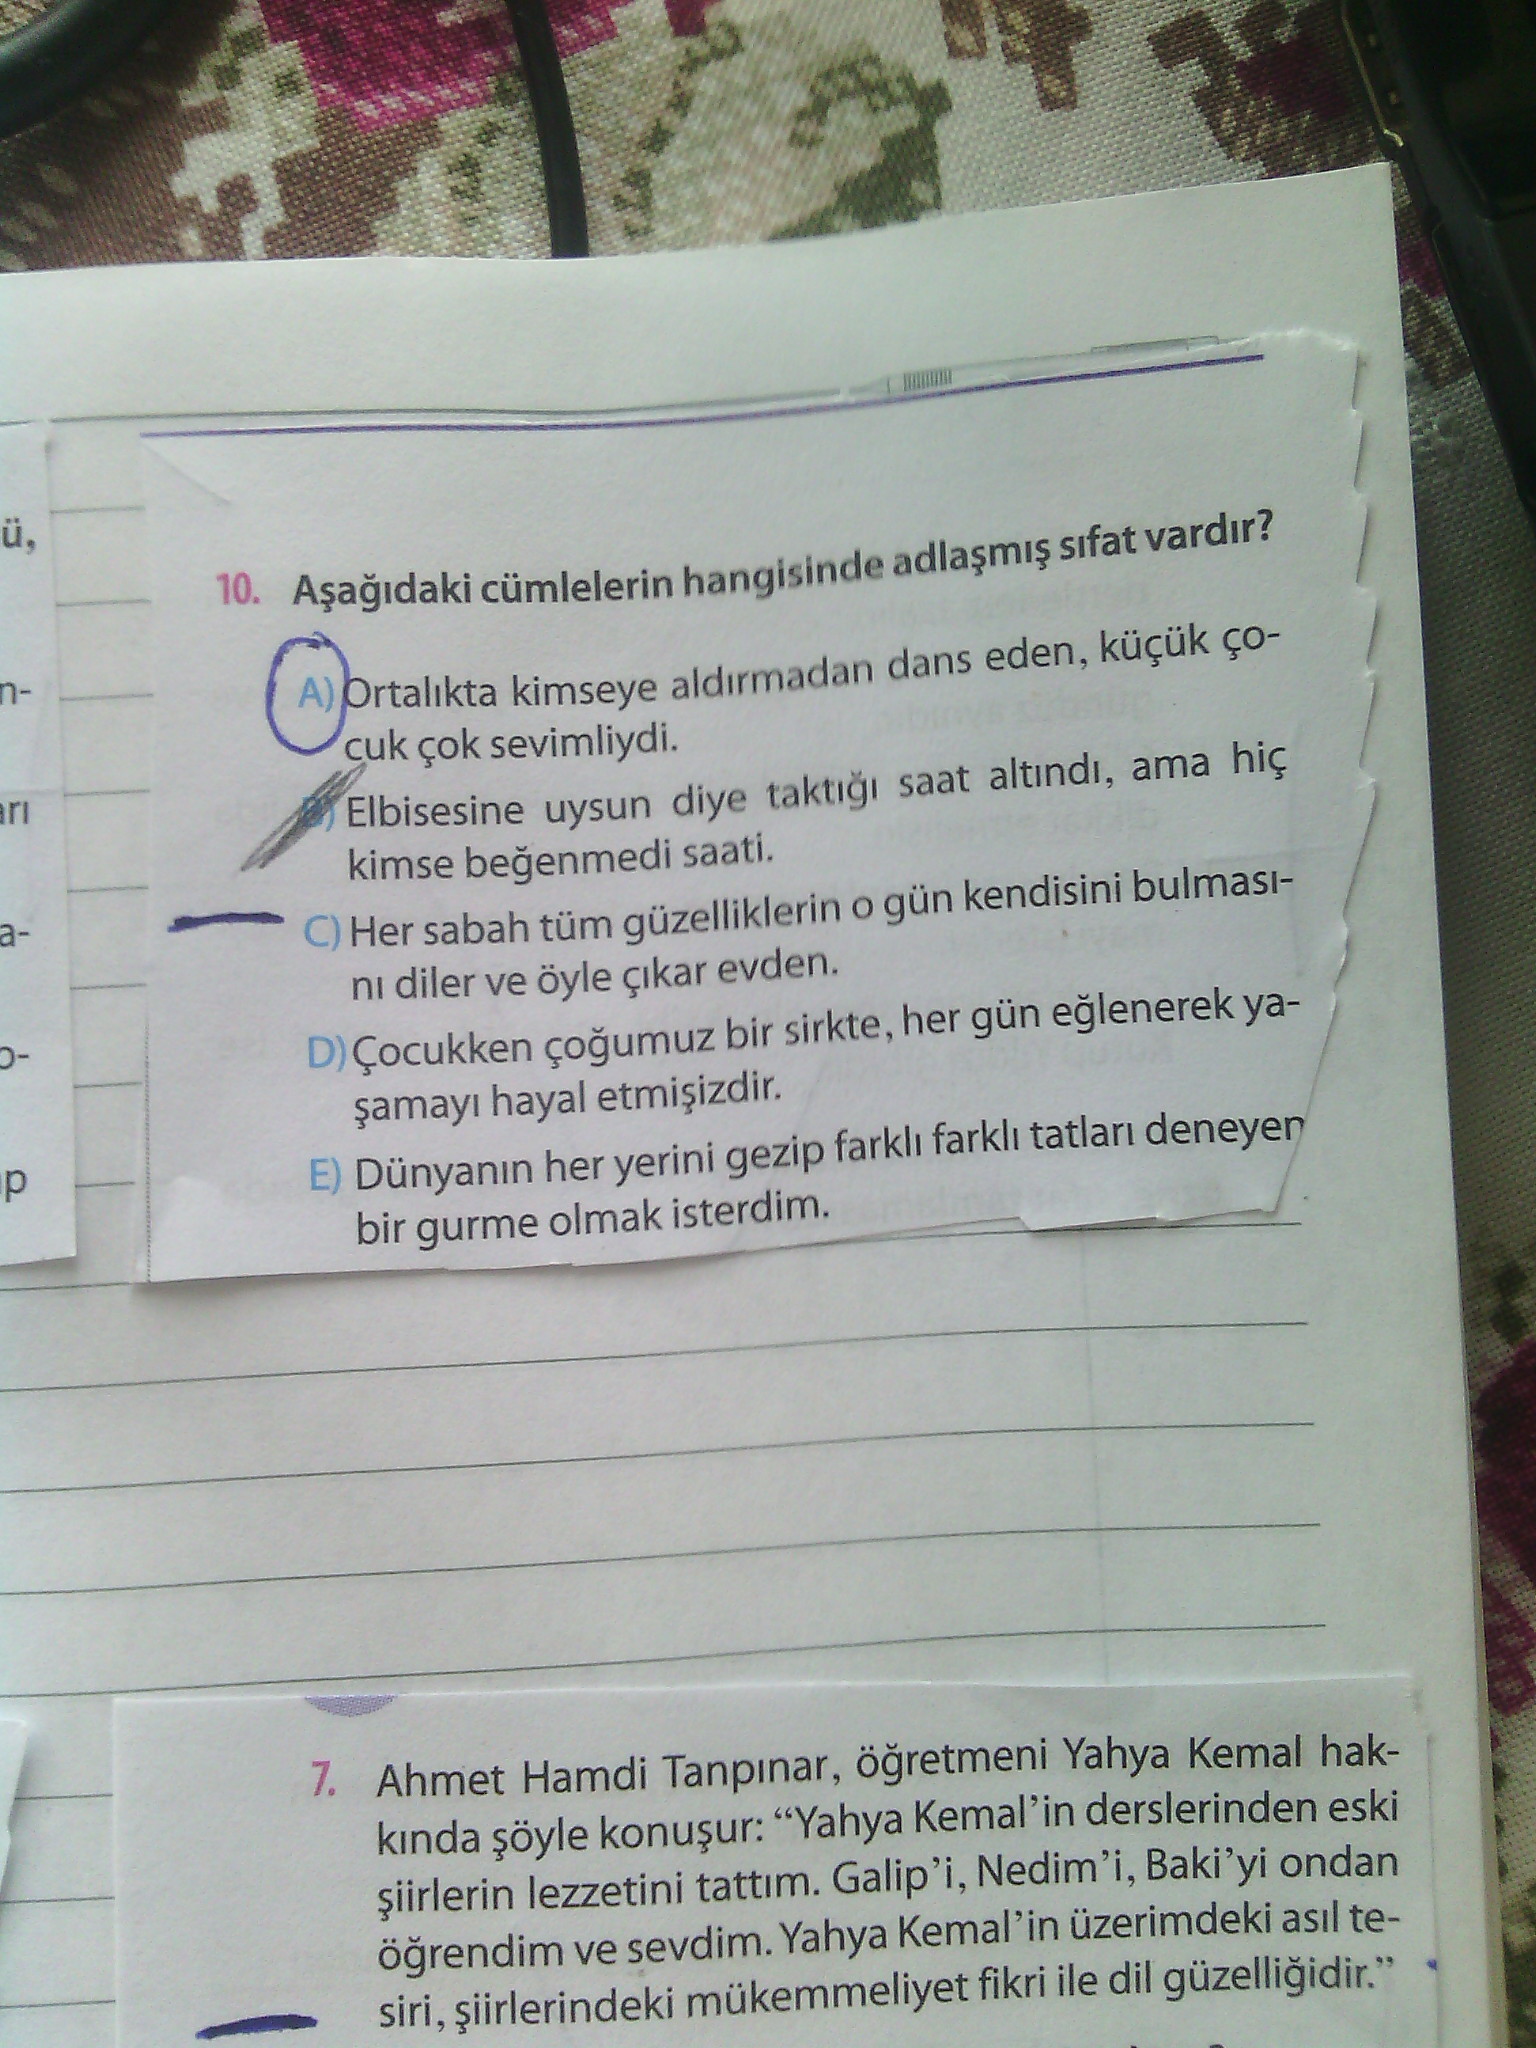 ü,
n-
arı
a-
o-
p
10. Aşağıdaki cümlelerin hangisinde adlaşmış sıfat vardır?
A) Ortalıkta kimseye aldırmadan dans eden, küçük ço-
cuk çok sevimliydi.
B) Elbisesine uysun diye taktığı saat altındı, ama hiç
kimse beğenmedi saati.
C) Her sabah tüm güzelliklerin o gün kendisini bulması-
nı diler ve öyle çıkar evden.
D) Çocukken çoğumuz bir sirkte, her gün eğlenerek ya-
şamayı hayal etmişizdir.
E) Dünyanın her yerini gezip farklı farklı tatları deneyen
bir gurme olmak isterdim.
7. Ahmet Hamdi Tanpınar, öğretmeni Yahya Kemal hak-
kında şöyle konuşur: “Yahya Kemal’in derslerinden eski
şiirlerin lezzetini tattım. Galip’i, Nedim’i, Baki’yi ondan
öğrendim ve sevdim. Yahya Kemal’in üzerimdeki asıl te-
siri, şiirlerindeki mükemmeliyet fikri ile dil güzelliğidir.”